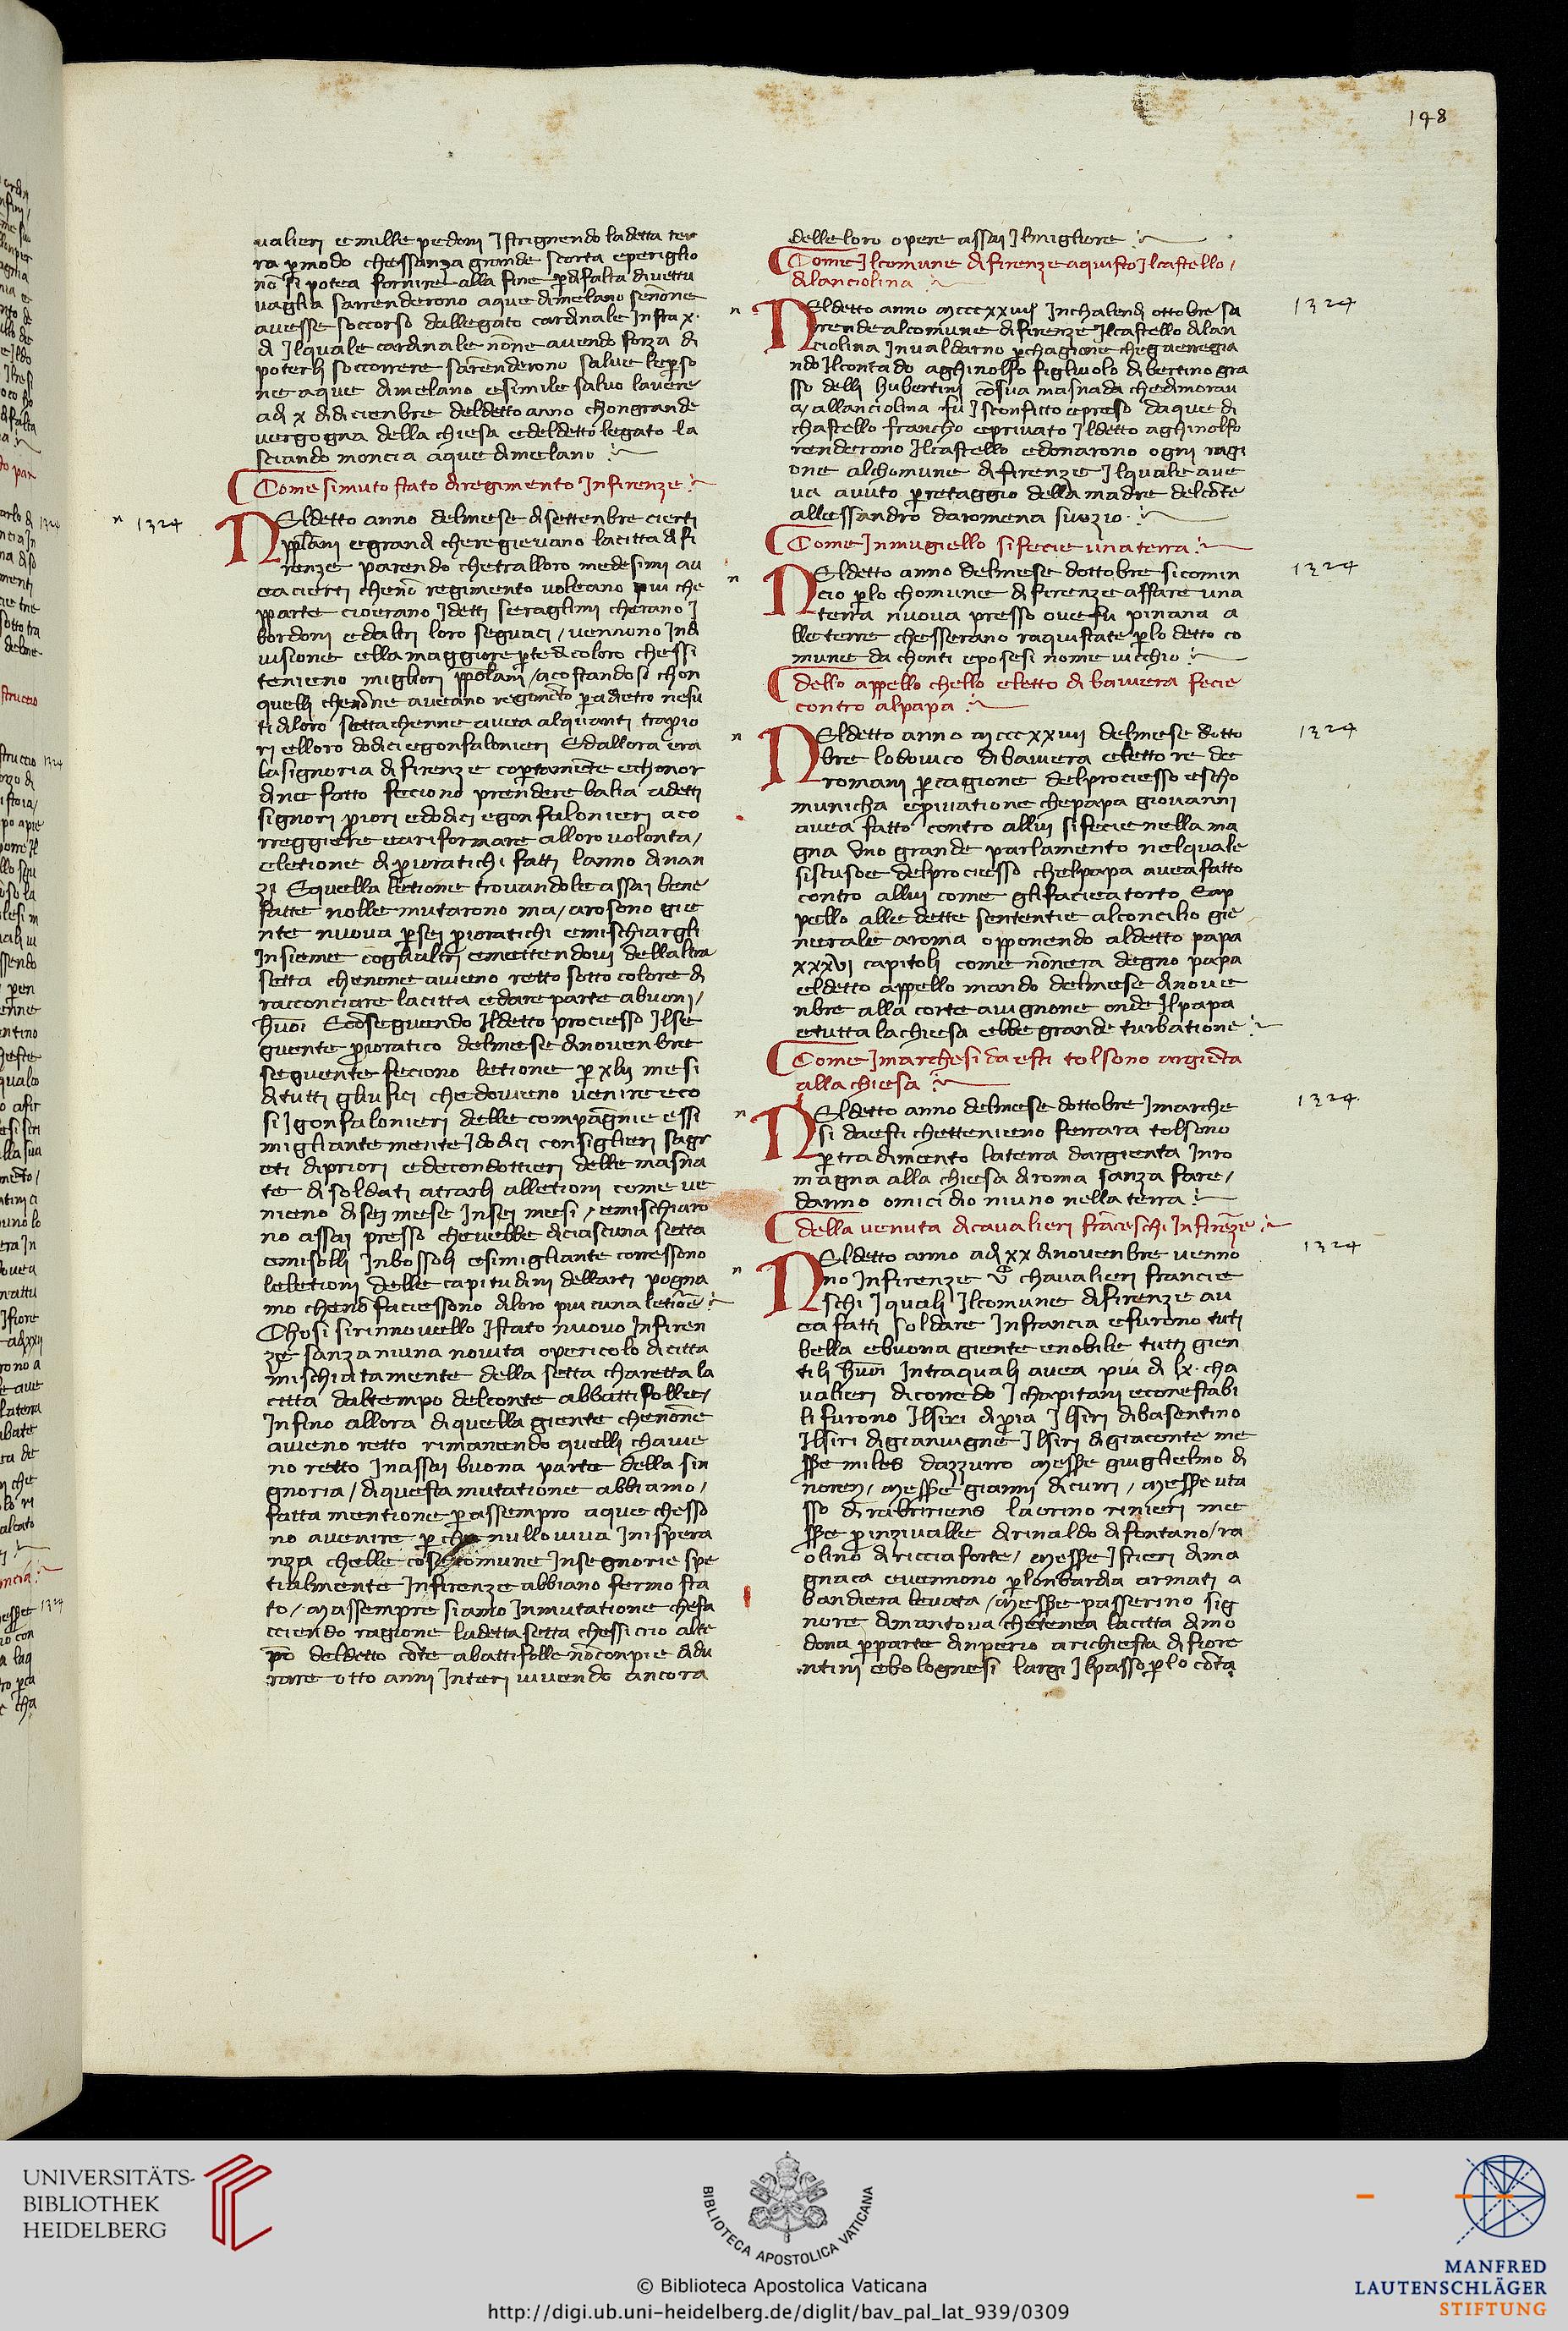 148
ualieri emille pedoni jstrignendo ladetta ter
ra p̱ modo chessanza grande scorta eperiglio
nō si potea fornire alla fine p̱ difalta diuettu
uaglia sarrenderono aque dimelano senōne
auesse soccorso dallegato cardinale jnfra x·
dj jlquale cardinale nōne auendo forza dj
poterlj soccorrere sarēnderono salue lep̱so
ne aque dimelano esimile saluo lauere
adj x didicienbre deldetto anno chongrande
uergogna della chiesa edeldetto legato la
sciando moncia aque dimelano
Come simuto stato diregimento jnfirenze
1324
NEldetto anno delmese disettenbre cierti
pp̱lani egrandi cheregieuano lacitta difi
renze parendo chetralloro medesimi au
ea cierti chenō regimento uoleano piu che
pp̱arte cioerano jdetti seraglini cherano j
bordoni edaltri loro seguaci / uennono jndi
uisione ella maggiore p̱te dicoloro chessi
tenieno migliori pp̱olani / acostandosi chon
quelli chenōne aueano regimēto p̱ adietro nesu
ti diloro setta chenne auea alquanti trapio
ri elloro dodici egonfalonieri Edallora era
lasignoria difirenze cop̱tamēte echonor
dine fatto feciono prendere balia adetti
signori p̱iori edodici egonfalonieri aco
rreggiere eariformare alloro uolonta /
eletione dip̱ioratichi fatti lanno dinan
zi Equella letione trouandole assai bene
fatte nolle mutarono ma / arosono gie
nte nuoua p̱ sei p̱ioratichi emischiargli
jnsieme coglialtri emettendoui dellaltra
setta chenone auieno retto sotto colore di
racconciare lacitta edare parte abuoni /
huoī Ecōseguendo jldetto prociesso jlse
guente p̱ioratico delmese dinouenbre
seguente feciono letione p̱ xlij mesi
ditutti gliufici chedouieno uenire eco
si jgonfalonieri delle compāgnie essi
migliantemente jdodici consiglieri sagr
eti dipriori edecondottieri delle masna
te disoldati atrarlj alletioni come ue
nieno disei mese jnsei mesi / emischiaro
no assai presso cheuebbe diciascuna setta
emisolli jnbossoli esimigliante corressono
leletioni delle capitudini dellarti pogna
mo chenō faciessono diloro piu cuna letiōe
Chosi sirinnouello jstato nuouo jnfiren
ze sanza niuna nouita opericolo dicitta
mischiatamente della setta charetta la
citta daltempo delconte abbattifolle /
jnfino allora diquella giente chenōne
auieno retto rimanendo quelli chauie
no retto jnassai buona parte della sin
gnoria / diquesta mutatione abbiamo /
fatta mentione p̱ assempro aque chesso
no auenire p̱ che nullo uiua jnispera
nza chelle cose comune jnsegnorie spe
tialmente jnfirenze abbiano fermo sta
to / Massempre siamo jnmutatione chefa
cciendo ragione ladetta setta chessi crio alte
po deldetto cōte abattifolle nōconpie didu
rare otto anni jnteri uiuendo ancora
delleloro opere assai jlmigliore
Come jlcomune difirenze aquisto jlcastello /
dilanciolina
1324
NEldetto anno Mcccxxiiij jnchalendi ottobre sa
rrende alcomune difirenze jlcastello dilan
ciolina jnualdarno p̱ chagione cheguerregia
ndo jlcontado aghinolfo figliuolo dibertino gra
sso delli hubertini cōsua masnada chedimorau
a / allanciolina fu jsconfitto epreso daque di
chastello francho epriuato jldetto aghinolfo
renderono jlcastello edonarono ogni ragi
one alchomune difirenze jlquale aue
ua auuto p̱retaggio della madre delcōte
allessandro daromena suozio
Come jnmugiello sifecie una terra
1324
NEldetto anno delmese dottobre sicomin
cio p̱lo chomune difirenze affare una
terra nuoua presso oue fu pinana a
lle terre chesserano raquistate p̱lo detto co
mune da chonti eposesi nome uicchio
dello appello chello eletto dibauiera fecie
contro alpapa
1324
NEldetto anno Mcccxxiiij delmese dotto
bre lodouico dibauiera elettore de
romani p̱ cagione delprociesso escho
municha ep̱iuatione chepapa giouanni
auea fatto contro allui sifecie nella ma
gna uno grande parlamento nelquale
siscusoe delprociesso chelpapa auea fatto
contro allui come glifaciea torto Eap
pello alle dette sententie alconcilio gie
nerale aroma opponendo aldetto papa
xxxvi capitoli come nōnera degno papa
eldetto appello mando delmese dinoue
nbre alla corte auignone onde jlpapa
etutta lachiesa ebbe grande turbatione
Come jmarchesi da esti tolsono argiēta
alla chiesa
1324
NEldetto anno delmese dottobre jmarche
si daesti chettenieno ferrara tolsono
p̱ tradimento laterra dargienta jnro
magna alla chiesa diroma sanza fare /
danno omicidio niuno nella terra
della uenuta dicaualieri frāceschi jnfirēze
1324
NEldetto anno adj xx dinouenbre uenno
no jnfirenze vc chaualieri francie
schi jquali jlcomune difirenze au
ea fatti soldare jnfrancia efurono tuti
bella ebuona giente enobile tutti gien
tili huoī jntraquali auea piu di lx· cha
ualieri dicorredo jchapitani econestabi
li furono jlsiri dip̱ia jlsiri dibasentino
jlsiri digianuigne jlsiri digiaconte me
sse miles dazzurro Messe guiglielmo di
noren / Messe gianni dicurri / Messe uta
sso dirabririens lauorino rinieri me
sse p̱inziualle dirinaldo difontano / ra
olino diricciaforte / Messe jstieri dima
gnaca euennono p̱ lonbardia armati a
bandiera leuata / Messe passerino sig
nore dimantoua chetenea lacitta dimo
dona p̱ parte dinperio arichiesta difiore
ntini ebolognesi largi jlpasso p̱ lo cōta
UNIVERSITÄTS-
BIBLIOTHEK
HEIDELBERG
BIBLIOTECA APOSTOLICA VATICANA
© Biblioteca Apostolica Vaticana
http://digi.ub.uni-heidelberg.de/diglit/bav_pal_lat_939/0309
MANFRED
LAUTENSCHLÄGER
STIFTUNG